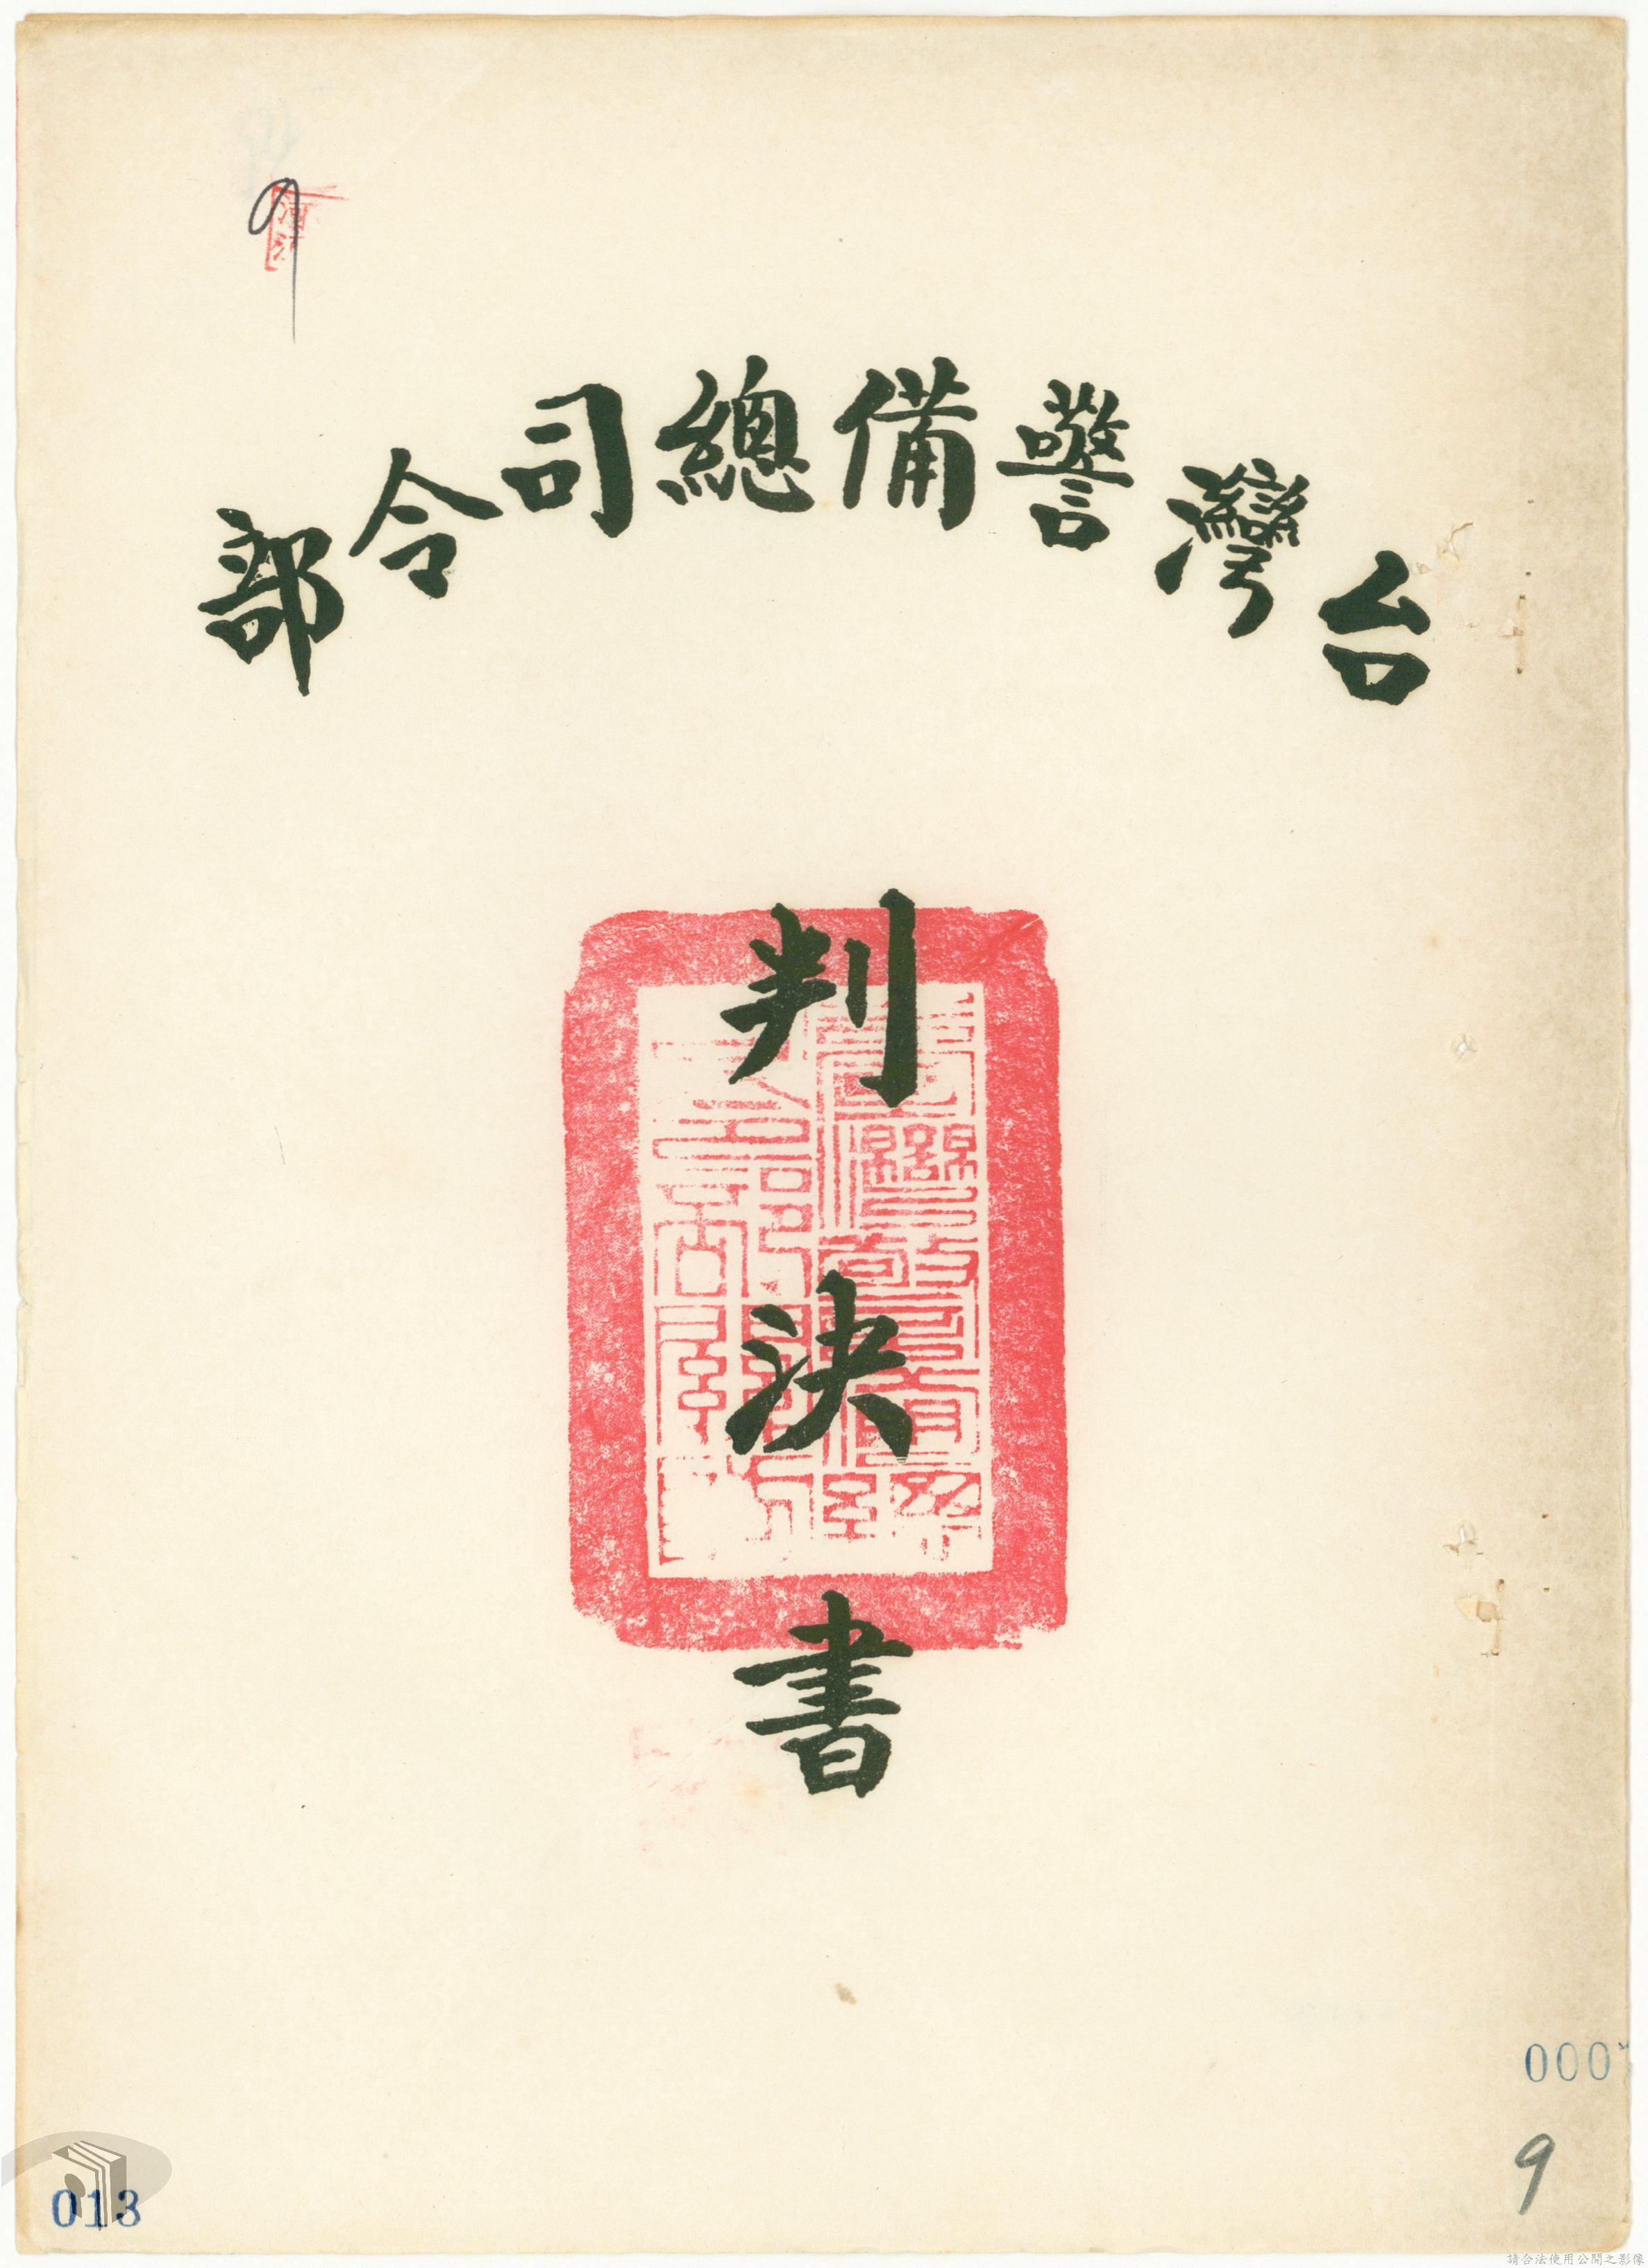 9
台灣警備總司令部
判決書
000
9
013
請合法使用公開之影像